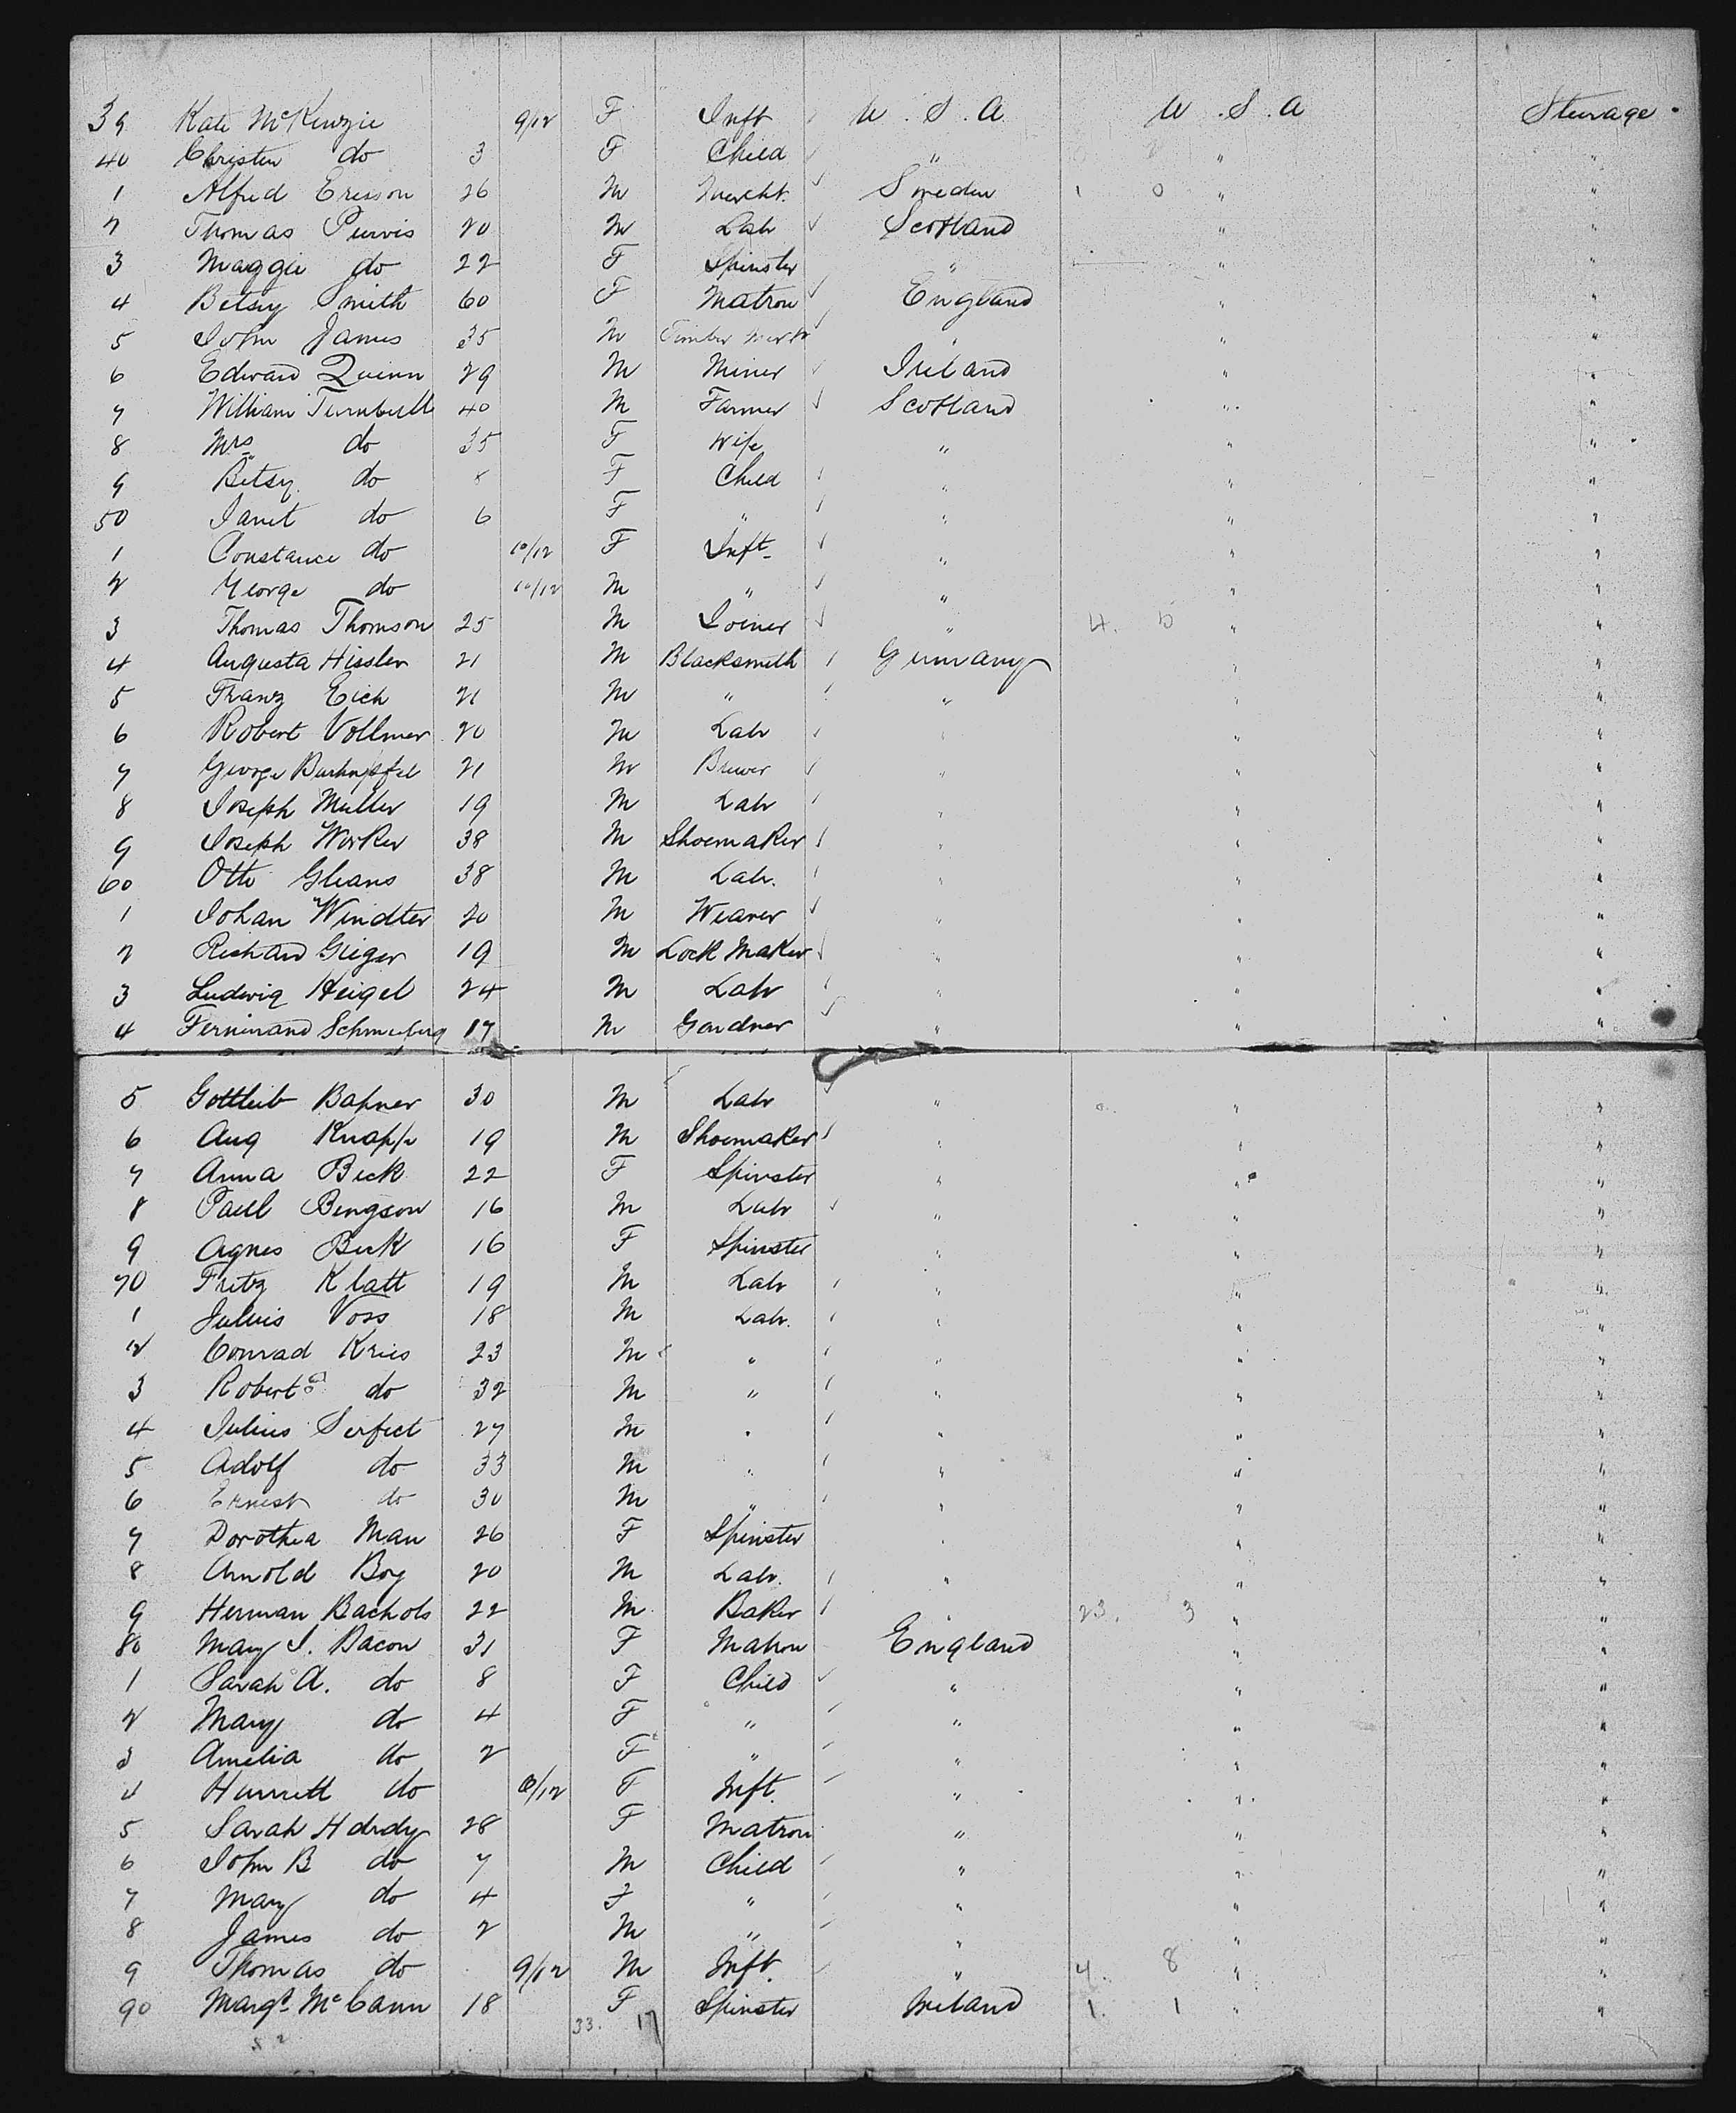 39 Kate McKenzie 9/12 F Inft U.S.A U.S.A Steerage
40 Christen do 3 F Child " " "
1 Alfred Eresson 26 M Sweden 1 0 " "
2 Thomas Purvis 20 M Labr Scotland " "
3 Maggie do 22 F Spinster " " "
4 Betsey Smith 60 F Matron England " "
5 John James 35 M Timber Mercht " " "
6 Edward Quinn 29 M Miner Ireland " "
7 William Turnbull 40 M Farmer Scotland " "
8 Mrs do 35 F Wife " " "
9 Betsy do 8 F Child " " "
50 Janet do 6 F " " " "
1 Constance do 10/12 F Inft " " "
2 George do 10/12 M " " " "
3 Thomas Thomson 25 M Joiner " 4. 5 " "
4 Augusta Hissler 21 M Blacksmith Germany " "
5 Franz Eich 21 M " " " "
6 Robert Vollmer 20 M Labr " " "
7 George 21 M Brewer " " "
8 Joseph Muller 19 M Labr " " "
9 Joseph Worker 38 M Shoemaker " " "
60 Otto Gleans 38 M Labr. " " "
1 Johan Windter 20 M Weaver " " "
2 Richard Geiger 19 M Lock Maker " " "
3 Ludwig Heigel 24 M Labr " " "
4 Ferninand 17 M Gardner " " "
5 Gottleib Bahner 30 M Labr " " "
6 Aug Knappe 19 M Shoemaker " " "
7 Anna Beck 22 F Spinster " " "
8 Paul Bengson 16 M Labr " " "
9 Agnes Beck 16 F Spinster " " "
70 Fritz Klatt 19 M Labr " " "
1 Julius Voss 18 M Labr. " " "
2 Conrad Kries 23 M " " " "
3 Robert do 32 M " " " "
4 Julius Serfect 27 M " " " "
5 Adolf do 33 M " " " "
6 Ernest do 30 M " " " "
7 Dorothea Man 26 F Spinster " " "
8 Arnold Boy 20 M Labr. " " "
9 Herman Bachols 22 M Baker " 23. 3 " "
80 Mary J. Bacon 31 F Matron England " "
1 Sarah A. do 8 F Child " " "
2 Mary do 4 F " " " "
3 Amelia do 2 F " " " "
4 Harriett do 6/12 F Inft. " " "
5 Sarah Hardy 28 F Matron " " "
6 John B do 7 M Child " " "
7 Mary do 4 F " " " "
8 James do 2 M " " " "
9 Thomas do 9/12 M Inft. " 4. 8 " "
90 Margt McCann 18 F Spinster Ireland 1. 1 " "
33. 17